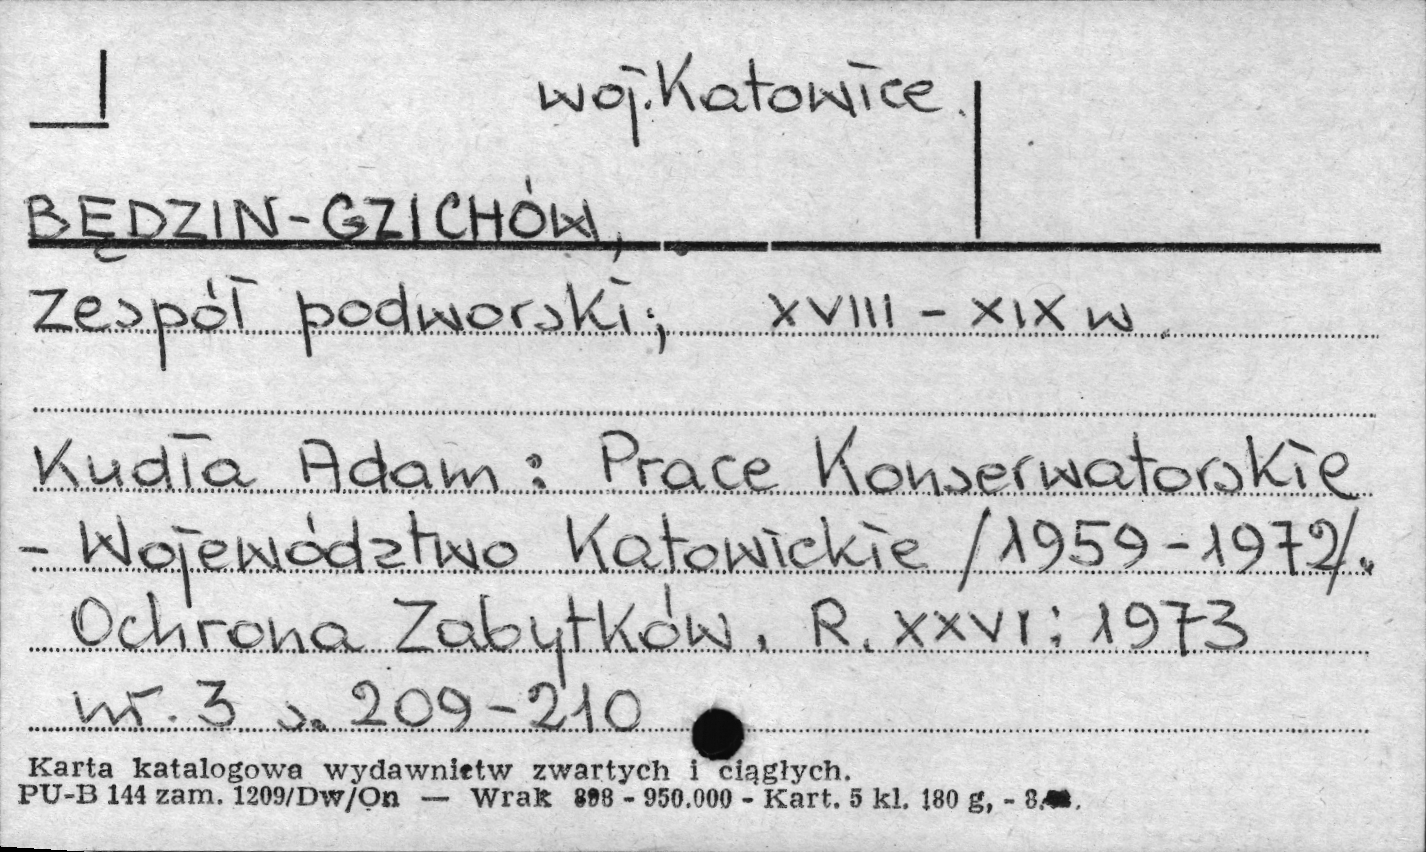 woj. Katowice.
BĘDZIN-GZICHÓW,
Zespół podworski; XVIII - XIX w.
Kudła Adam: Prace Konserwatorskie
- Województwo Katowickie /1959-1972/.
Ochrona Zabytków. R. XXVI: 1973
nr. 3 s. 209-210
Karta katalogowa wydawnictw zwartych i ciągłych.
PU-B 144 zam. 1209/Dw/On — Wrak 898 - 950.000 - Kart. 5 kl. 180 g, - 8.